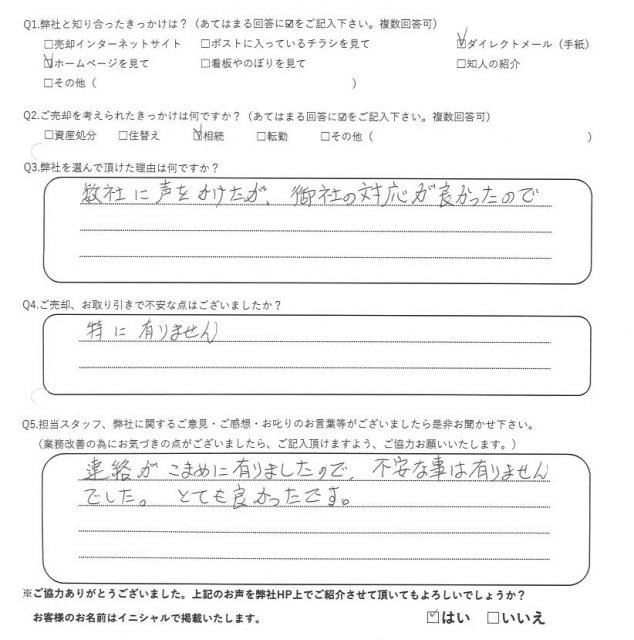 Q1.弊社と知り合ったきっかけは？（あてはまる回答に☑をご記入下さい。複数回答可）
□売却インターネットサイト　□ポストに入っているチラシを見て　☑ダイレクトメール（手紙）
☑ホームページを見て　□看板やのぼりを見て　□知人の紹介
□その他（　）
Q2.ご売却を考えられたきっかけは何ですか？（あてはまる回答に☑をご記入下さい。複数回答可）
□資産処分　□住替え　☑相続　□転勤　□その他（　）
Q3.弊社を選んで頂けた理由は何ですか？
数社に声をかけたが、御社の対応が良かったので
Q4.ご売却、お取り引きで不安な点はございましたか？
特に有りません
Q5.担当スタッフ、弊社に関するご意見・ご感想・お叱りのお言葉等がございましたら是非お聞かせ下さい。
（業務改善の為にお気づきの点がございましたら、ご記入頂けますよう、ご協力お願いいたします。）
連絡がこまめに有りましたので、不安な事は有りません
でした。とても良かったです。
※ご協力ありがとうございました。上記のお声を弊社HP上でご紹介させて頂いてもよろしいでしょうか？
お客様のお名前はイニシャルで掲載いたします。　☑はい　□いいえ